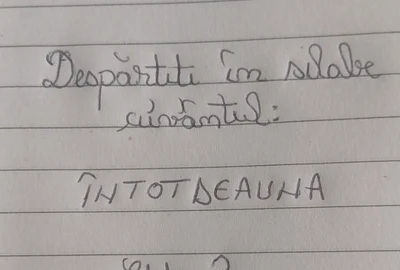 Despărțiti în silabe
cuvântul:
ÎNTOTDEAUNA